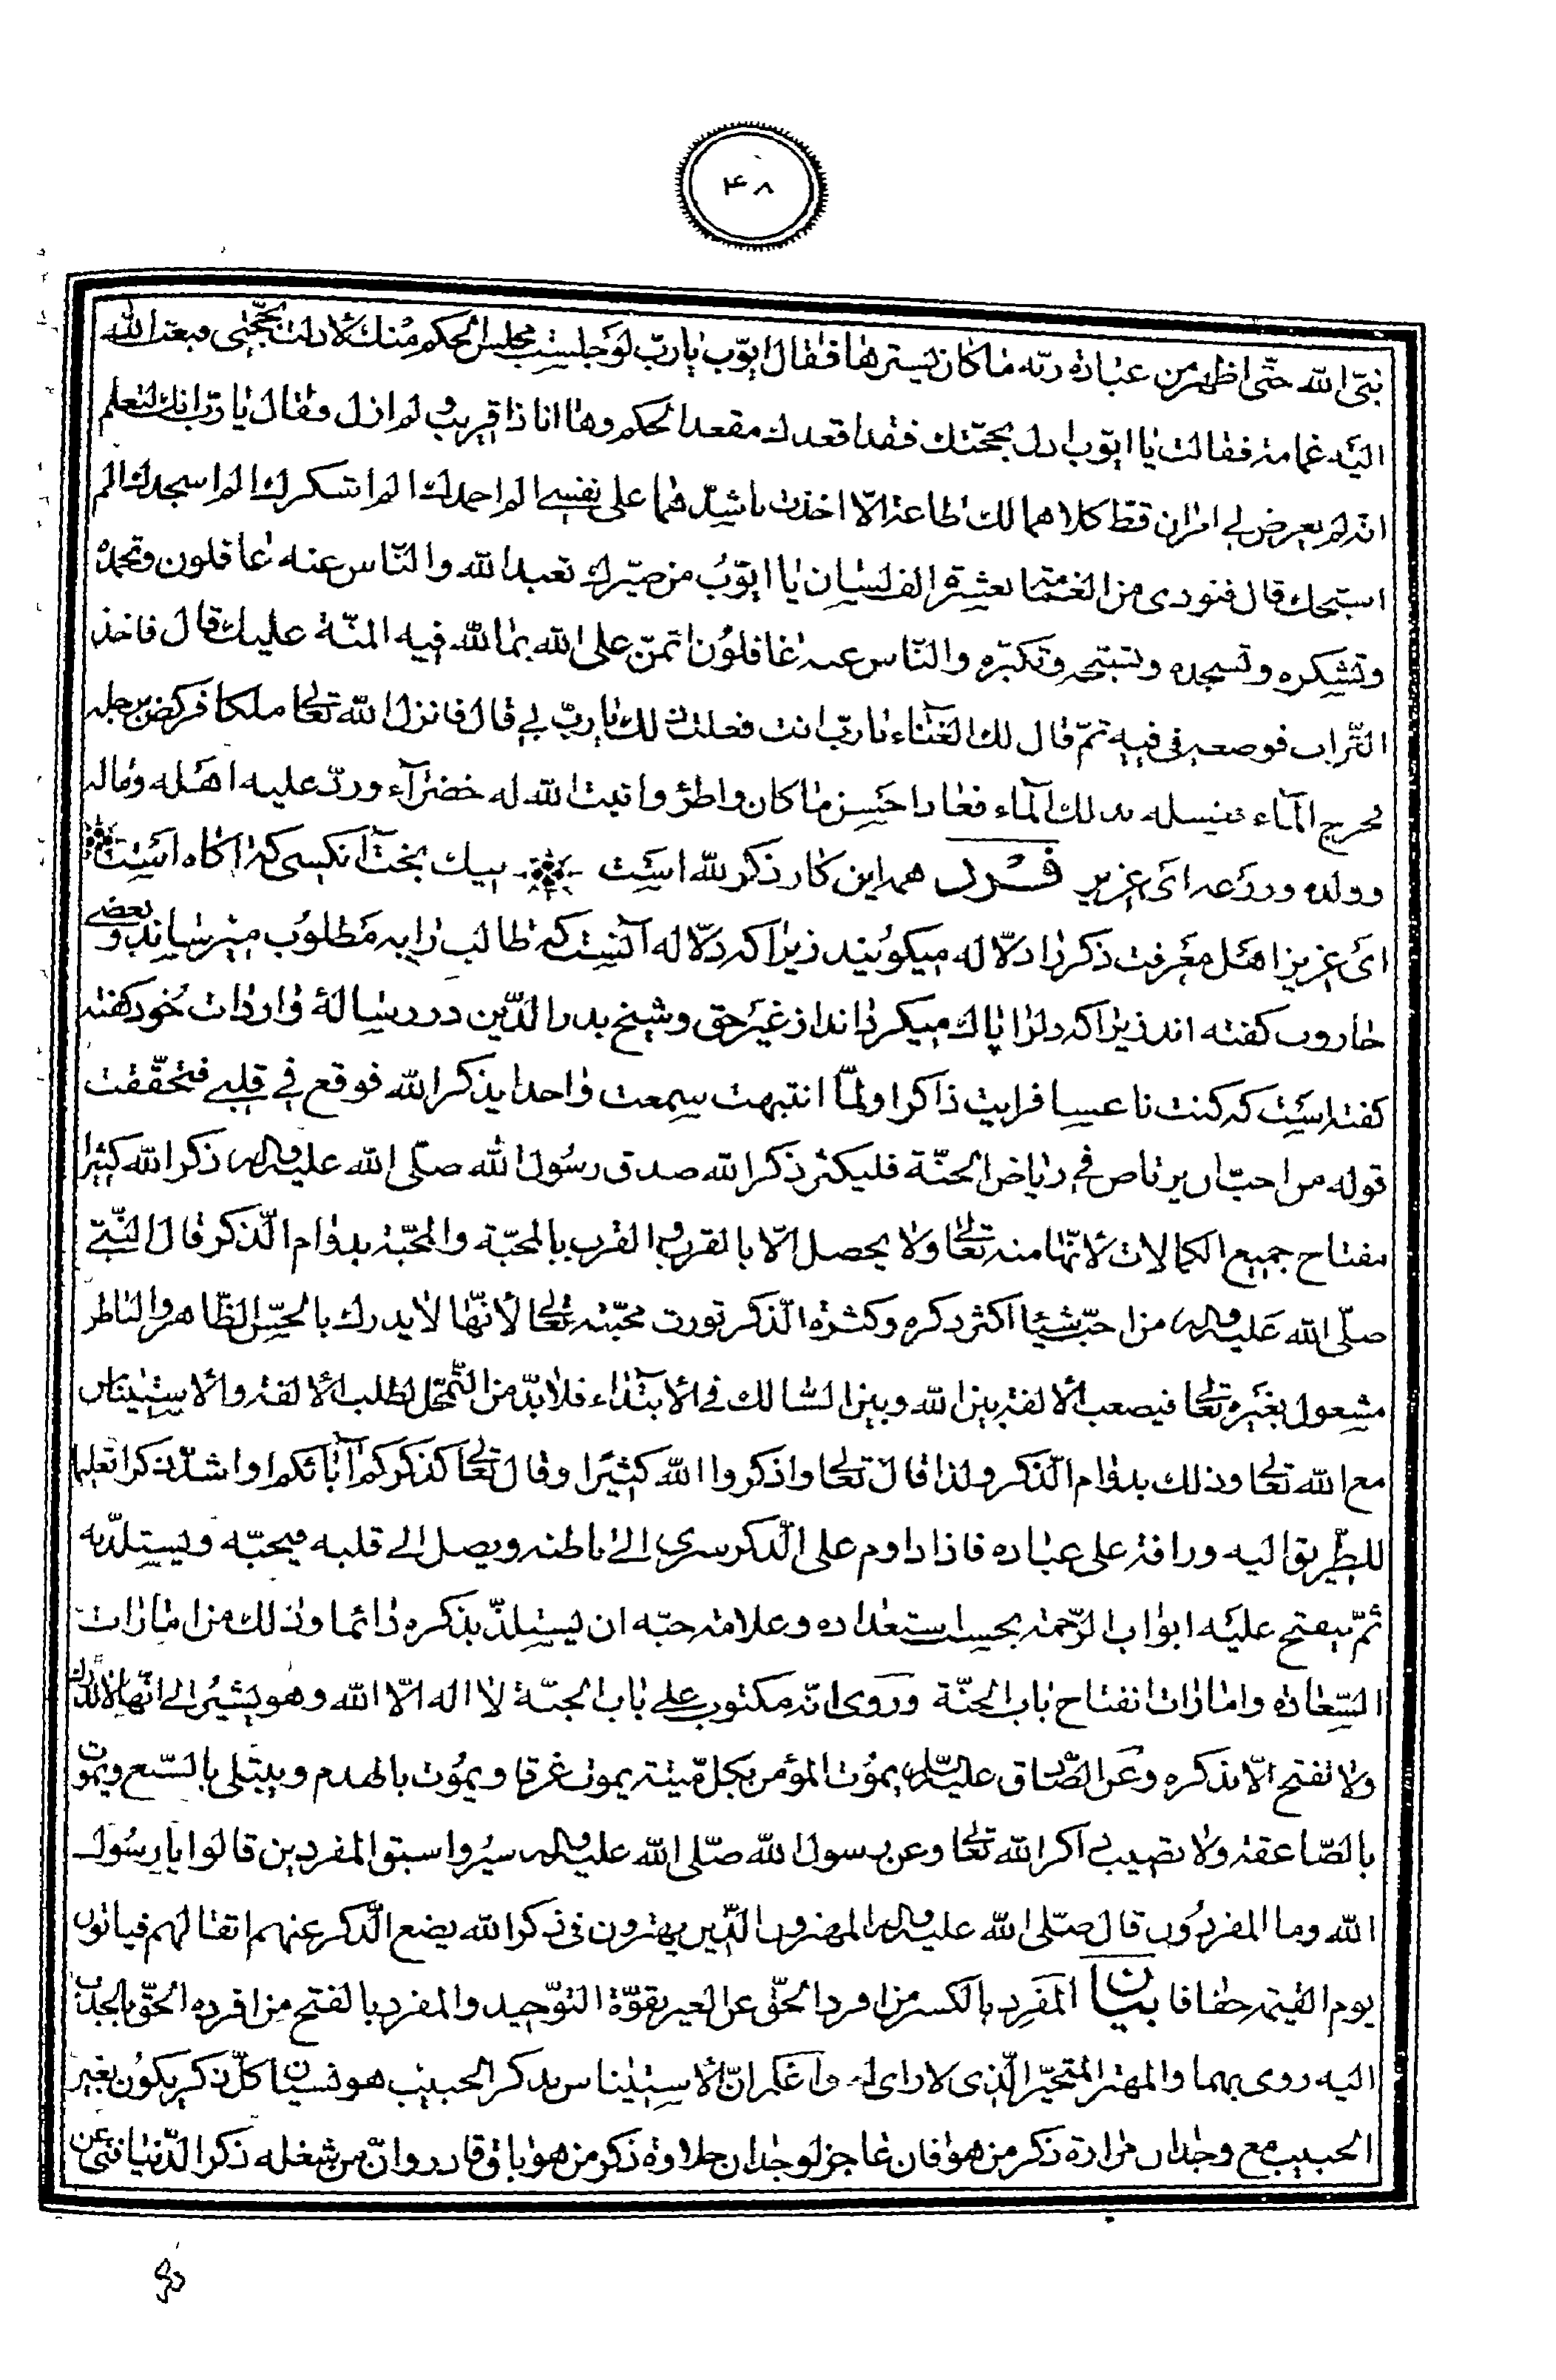 ۴۸
نبیّ الله حتّی اظهر من عبادة ربّه ما کان یسترها فقال ایّوب یا ربّ لو جلست مجلس الحکم منک لادلت بحجّتی فبعث الله
الیه غمامة فقالت یا ایّوب ادل بحجّتک فقد اقعدک مقعد الحکم وها انا ذا قریب و لم ازل فقال یا ربّ انک لتعلم
انه لم یعرض لی امران قطّ کلاهما لک طاعة الّا اخذت باشدّهما علی نفسی الم احمدک الم اشکرک الم اسجدک الم
اسبحک قال فنودی من الغمامة بعشرة الف لسان یا ایّوبُ من صیّرک تعبد الله والنّاس عنه غافلون وتحمده
وتشکره وتسجده وتسبّحه وتکبّره والنّاس عنه غافلُون اتمنّ علی الله بما لله فیه المنّة علیک قال فاخذ
التّراب فوضعه فی فیه ثمّ قال لک الغثاء یا ربّ انت فعلت ذلک یا ربّ بی قال فانزل الله تعالی ملکا فرکض برجله
فخرج المآء فغسله بذلک المآء فعاد احسن ما کان واطرؤ وانبت الله له خضرآء وردّ علیه اهله وماله
وولده وزرعه ای عزیز فرد همه این کار ذکر لله است نیک بخت آنکسی که آکاه است
ای عزیز اهل معرفت ذکر را دلّاله میکوُیند زیرا که دلّاله آنست که طالب را به مطلوُب میرساند و بعضی
جاروب کفته اند زیرا که دلرا پاک میکرداند از غیر حق وشیخ بدر الدّین در رسالهٔ واردات خود کفته
کفته است که کنت ناعسا فرایت ذاکرا ولمّا انتبهت سمعت واحدا یذکر الله فوقع فی قلبی فتحقّقت
قوله من احبّ ان یرتاض فی ریاض الجنّة فلیکثر ذکر الله صدق رسُول الله صلّی الله علیه واله ذکر الله کثیرا
مفتاح جمیع الکمالات لأنّها منه تعالی ولا یحصل الّا بالقرب و القرب بالمحبّة والمحبّة بدوام الذّکر قال النّبیّ
صلّی الله علیه واله من احبّ شیئا اکثر ذکره وکثرة الذّکر تورث محبّته تعالی لأنّها لا یدرک بالحسّ الظّاهر والناظر
مشغول بغیره تعالی فیصعب الألفة بین الله وبین السّالک فی الأبتداء فلا بدّ من التّمحّل لطلب الألفة والأستیناس
مع الله تعالی وذلک بدوام الذّکر ولذا قال تعالی واذکروا الله کثیرا وقال تعالی کذکرکم آبائکم او اشدّ ذکرا تعلیما
للطّریق الیه ورافة علی عباده فاذا داوم علی الذّکر سری الی باطنه ویصل الی قلبه فیحبّه ویستلذّ به
ثمّ یفتح علیه ابواب الرّحمة بحسب استعداده وعلامة حبّه ان یستلذّ بذکره دائما وذلک من امارات
السّعادة وامارات انفتاح باب الجنّة وروی انّه مکتوب علی باب الجنّة لا اله الّا الله وهو یشیر الی انّها لا تدرک
ولا تفتح الّا بذکره وعن الصّادق علیه السّلام یموُت المؤمن بکلّ میتة یموت غرقا ویموُت بالهدم ویبتلی بالسّبع ویموت
بالصّاعقة ولا تصیب ذاکر الله تعالی وعن رسول الله صلّی الله علیه واله سیرُوا سبق المفردین قالوا یا رسُول
الله وما المفردُون قال صلّی الله علیه واله المهترون الذّین یهترون فی ذکر الله یضع الذّکر عنهم اثقالهم فیاتون
یوم القیٰمة خفافا بیان المفرِد بالکسر من افرد الحقّ عن الغیر بقوّة التّوحید والمفرد بالفتح من افرده الحقّ بالجذب
الیه روی بهما والمهتر المتحیّر الّذی لا رای له واعلم انّ الأستیناس بذکر الحبیب هو نسیان کلّ ذکر یکوُن بغیر
الحبیب مع وجدان مرارة ذکر من هو فان عاجز لوجدان حلاوة ذکر من هو باق قادر وانّ من شغله ذکر الدّنیا فنی عن